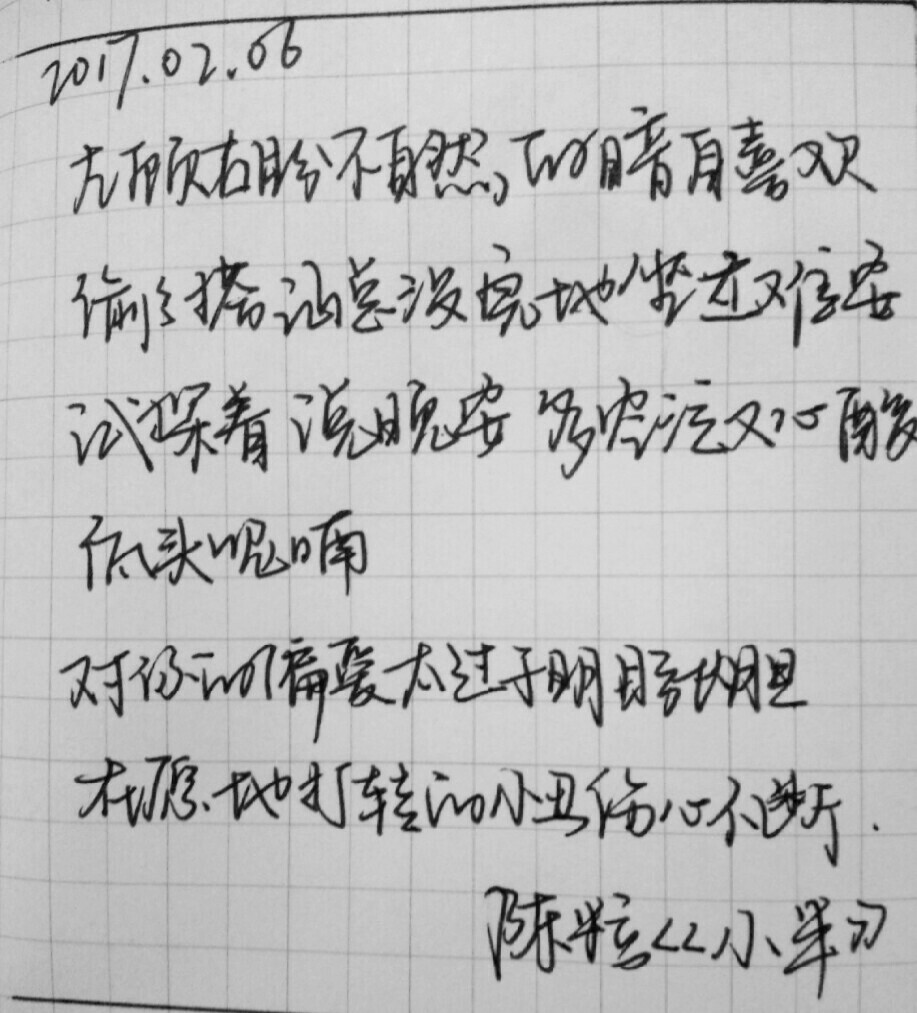 2017.02.06
左顾右盼不自然的暗自喜欢
偷々搭讪总没完地坐立难安
试探着说晚安 多空泛又心酸
低头呢喃
对你的偏爱太过于明目张胆
在原地打转的小丑伤心不断.
陈粒《小半》